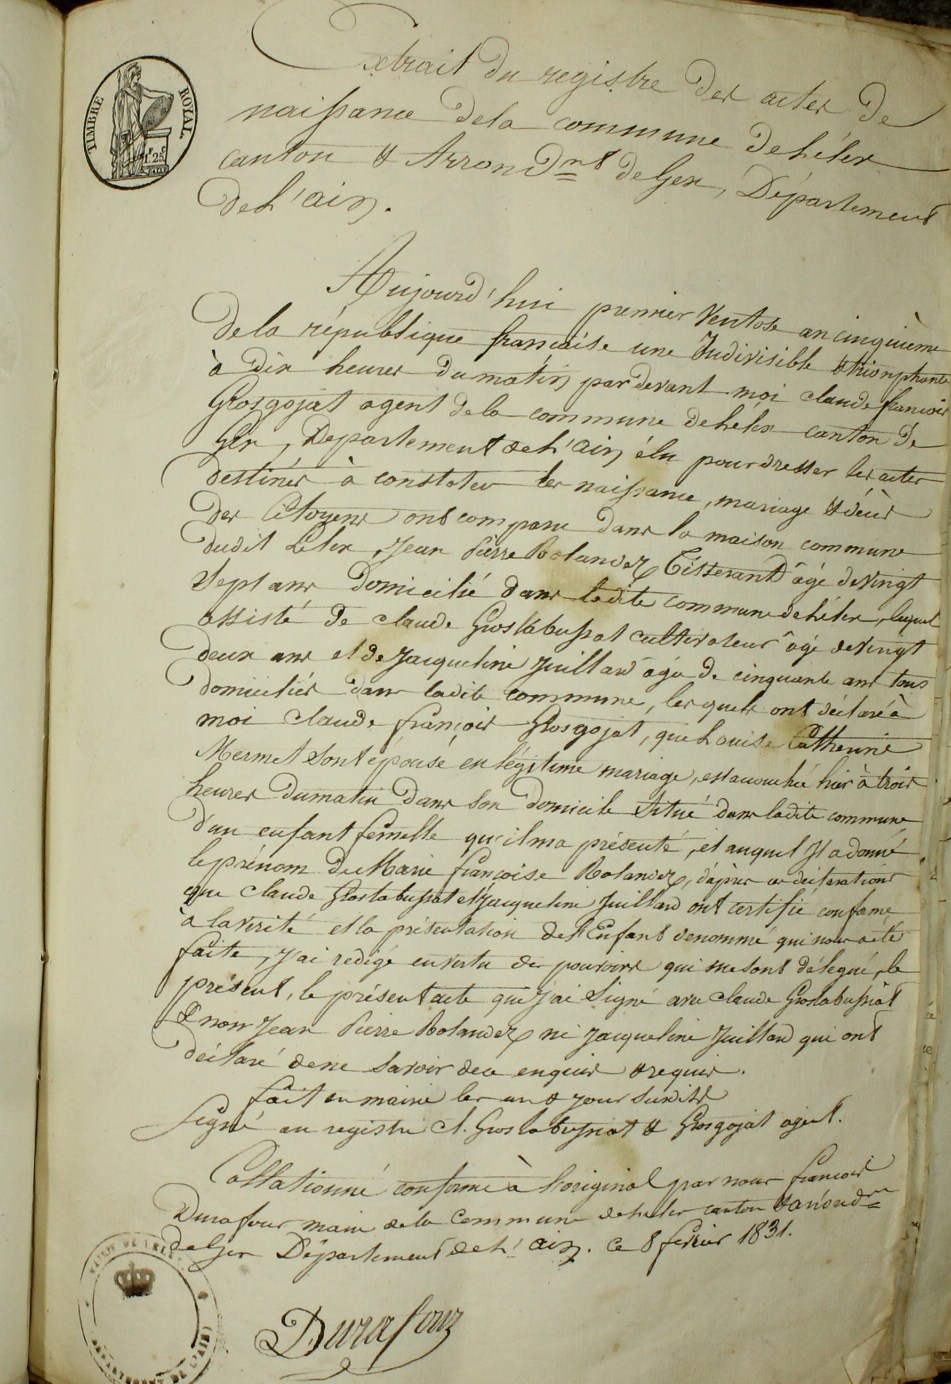 TIMBRE ROYAL
1F. 25C
Extrait du registre des actes de
naissance dela commune deLélex
canton & Arrondmt de Gex, Département
deL'ain.
Aujourd'hui premier Ventose an cinquième
Dela république française une Indivisible & triomphante
à Dix heures Dumatin pardevant moi claude françois
Grosgojat agent dela commune deLélex canton De
Gex, Département deL'ain élu pour dresser les actes
destinés à constater les naissance, mariage & décès
des Citoyens ont comparu dans la maison commune
dudit Lélex, Jean Pierre Rolandez Tisserand âgé devingt
Sept ans Domicilié dans ladite commune deLélex, lequel
assisté De claude Groslabussiat cultivateur âgé devingt
deux ans et de Jacqueline Juilland agée De cinquante ans tous
domiciliés dans ladite commune, lesquels ont déclaré à
moi claude françois Grosgojat, que Louise Catherine
Mermet Sont épouse en légitime mariage, est accouchée hier à trois
heures Dumatin Dans son Domicile situé Dans ladite commune
d'un enfant femelle qu'il ma présenté, et auquel Il a donné
le prénom De Marie françoise Rolandez, d'après ces déclarations
que claude Groslabussiat et Jacqueline Juilland ont certifié conforme
à la vérité et la présentation de l'Enfant denommé qui nous a été
faite, J'ai redigé en vertu des pouvoirs qui me sont délegué, le
présent, le présent acte que J'ai Signé avec claude Groslabussiat
& non Jean Pierre Rolandez ni Jacqueline Juilland qui ont
déclaré dene savoir dece enquis & requis.
fait en mairie les an & jour Susdits
Signé au registre Cl. Groslabussiat & Grosgojat agent.
Collationné conforme à l'original par nous françois
Durafour maire dela commune deLélex canton & arrondmt
de Gex Département deL'ain. ce 8 février 1831.
Durafour
MAIRIE DE LELEX
DEPARTEMENT DE L'AIN